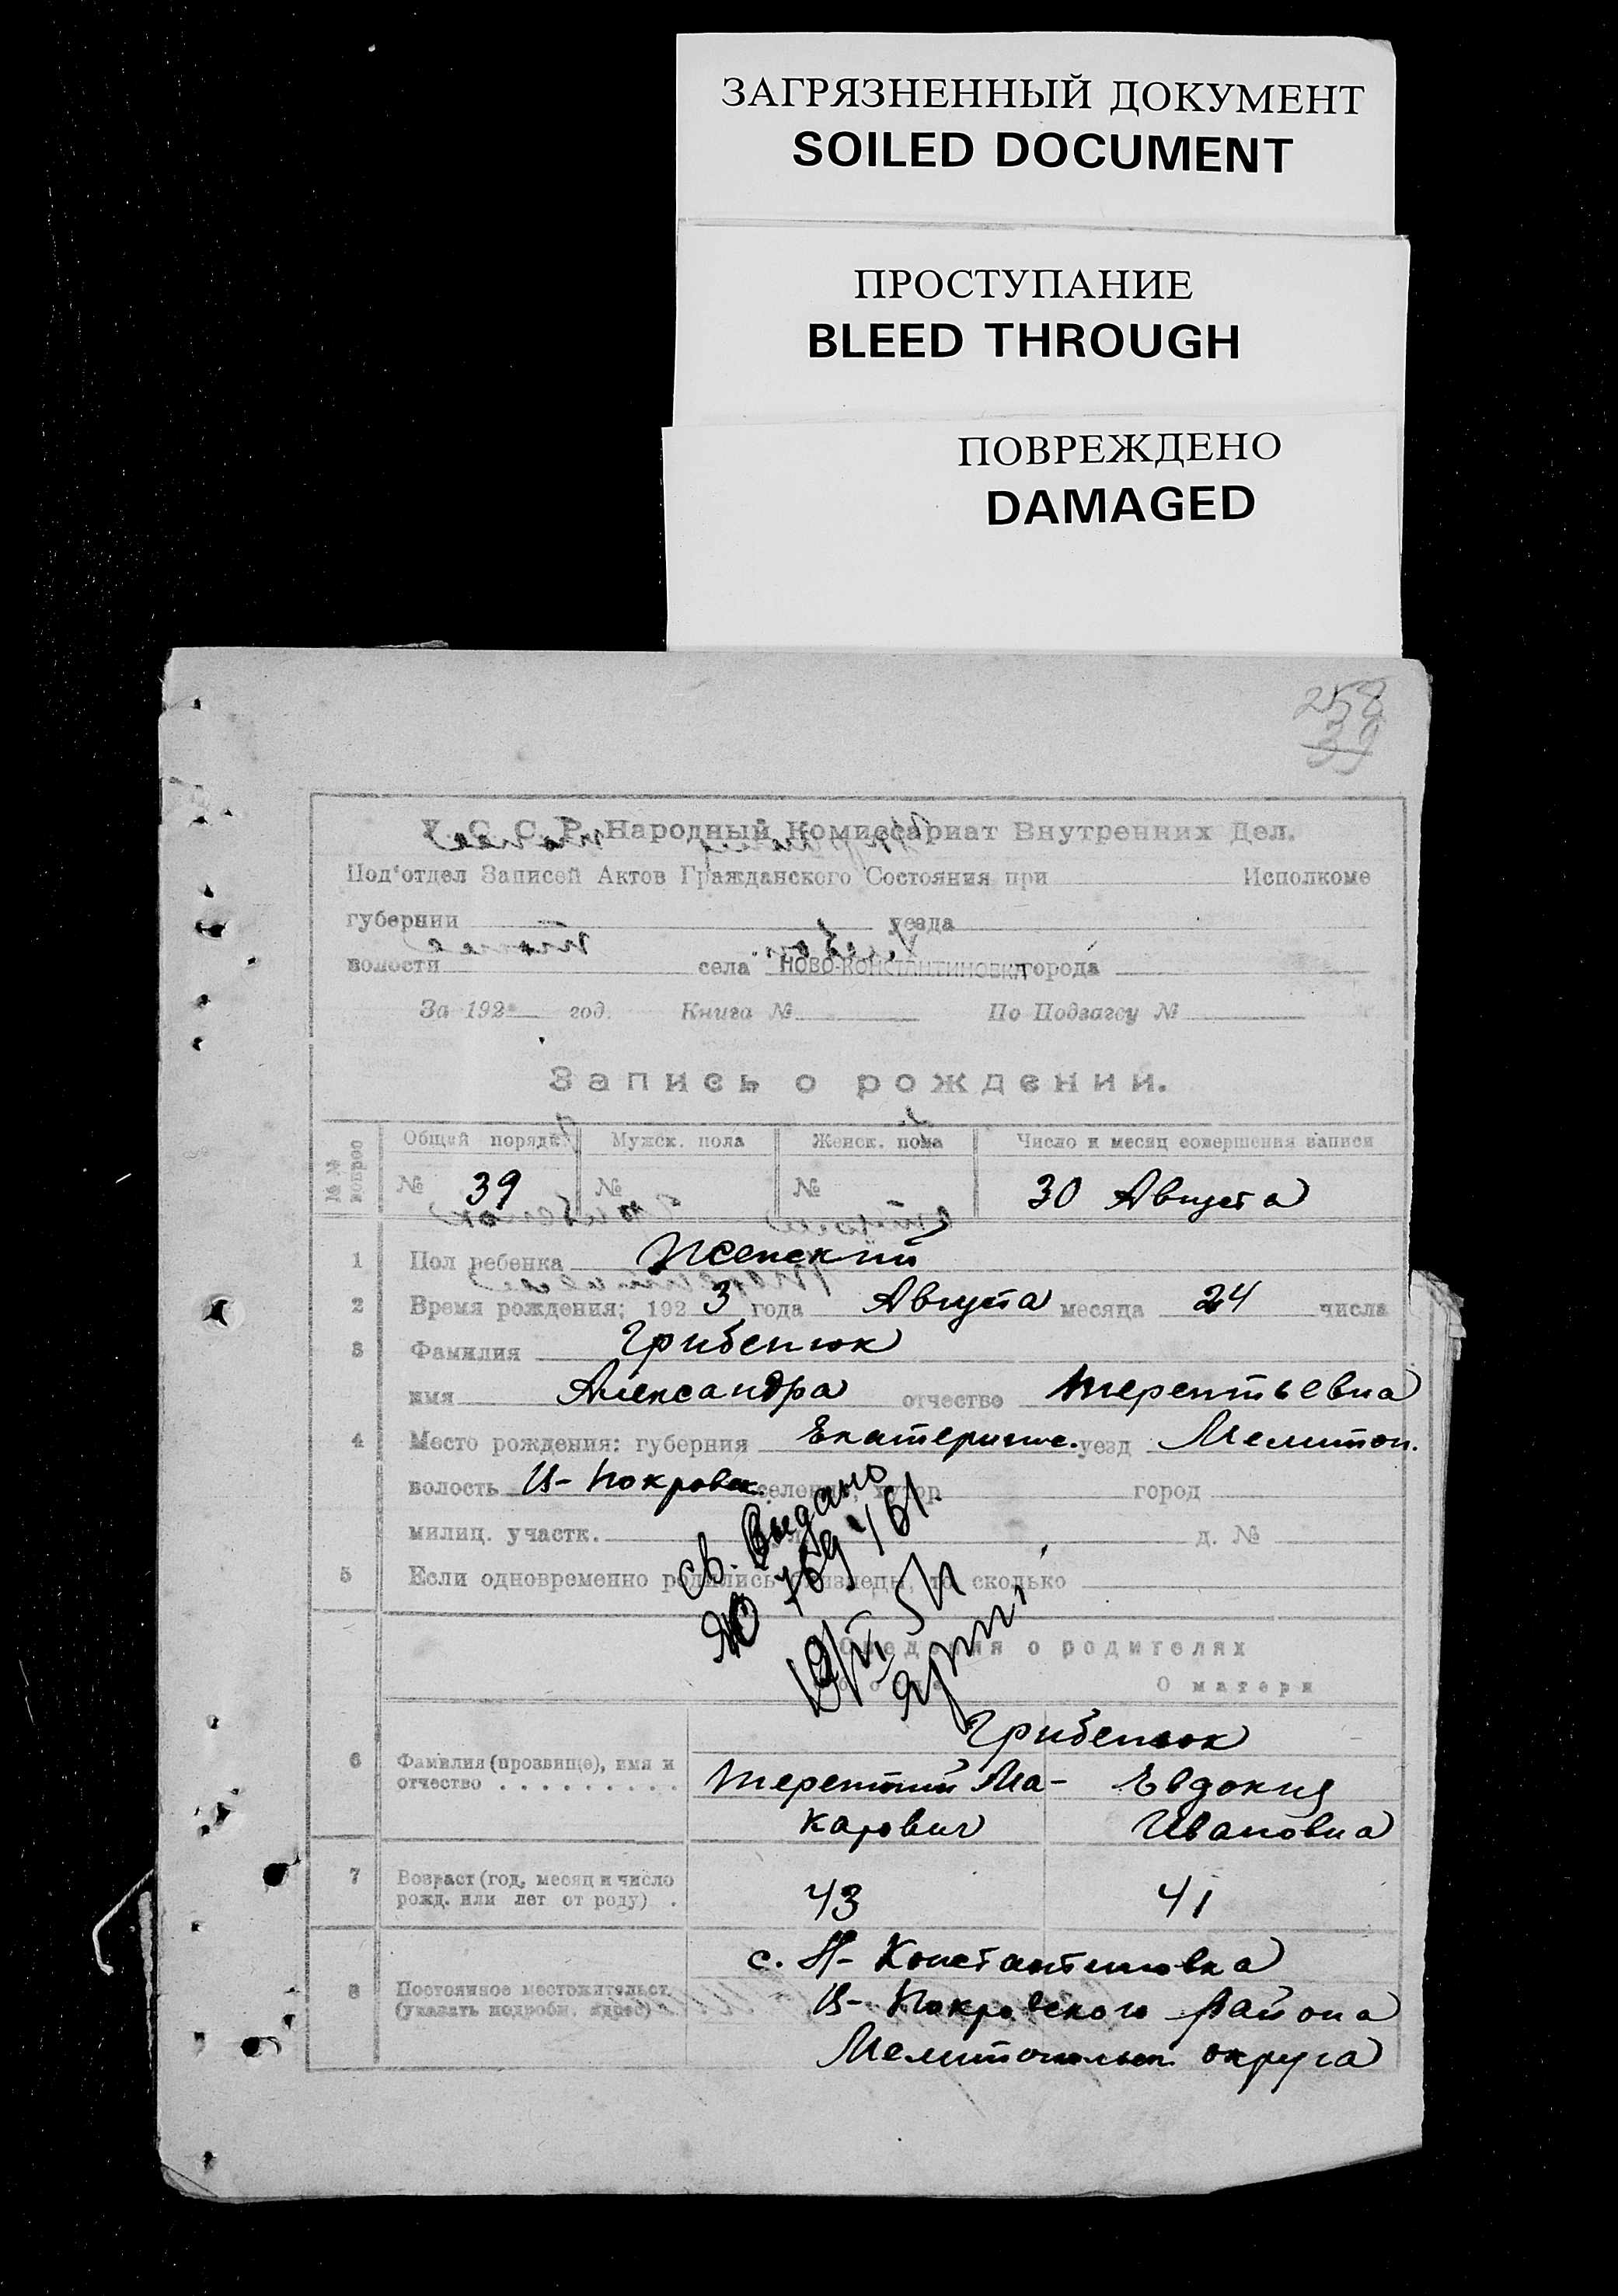 ЗАГРЯЗНЕННЫЙ ДОКУМЕНТ
SOILED DOCUMENT
ПРОСТУПАНИЕ
BLEED THROUGH
ПОВРЕЖДЕНО
DAMAGED
258
39
У. С. С. Р. Народный Комиссариат Внутренних Дел.
Под'отдел Записей Актов Гражданского Состояния при Исполкоме
губернии уезда
волости села НОВО-КОНСТАНТИНОВКА города
За 192 год. Книга № По Подзагсу №
Запись о рождении.
№№ вопрос Общий порядк. Мужск. пола Женск. пола Число и месяц совершения записи
№ 39 № № 30 Августа
1 Пол ребенка Женский
2 Время рождения: 192 3 года Августа месяца 24 числа
3 Фамилия Грибенюк
имя Александра отчество Терентьевна
4 Место рождения: губерния Екатерин. уезд Мелитоп.
волость Ц-Покровск. селение, хутор город
милиц. участк. д. №
5 Если одновременно родились близнецы, то сколько
Св. Выдано
ЯЮ 769461
Сведения о родителях
О матери
Грибенюк
6 Фамилия (прозвище), имя и отчество . . . . . . . . . Терентий Ма- Евдокия
карович Ивановна
7 Возраст (год, месяц и число рожд. или лет от роду) . 43 41
8 Постоянное местожительст. (указать подробн. адрес) с. Н-Константиновка
Ц-Покровского района
Мелитопольск. округа